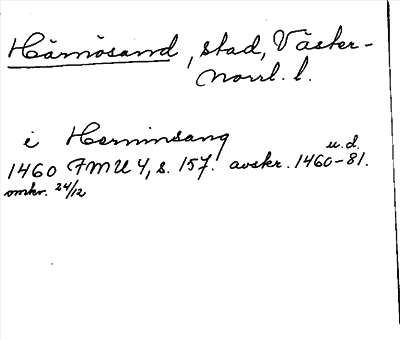 Härnösand, stad, Väster-
Norrl. l.
i Herninsang
u.d.
1460 FMU 4, s. 157. avskr. 1460-81.
omkr. 24/12